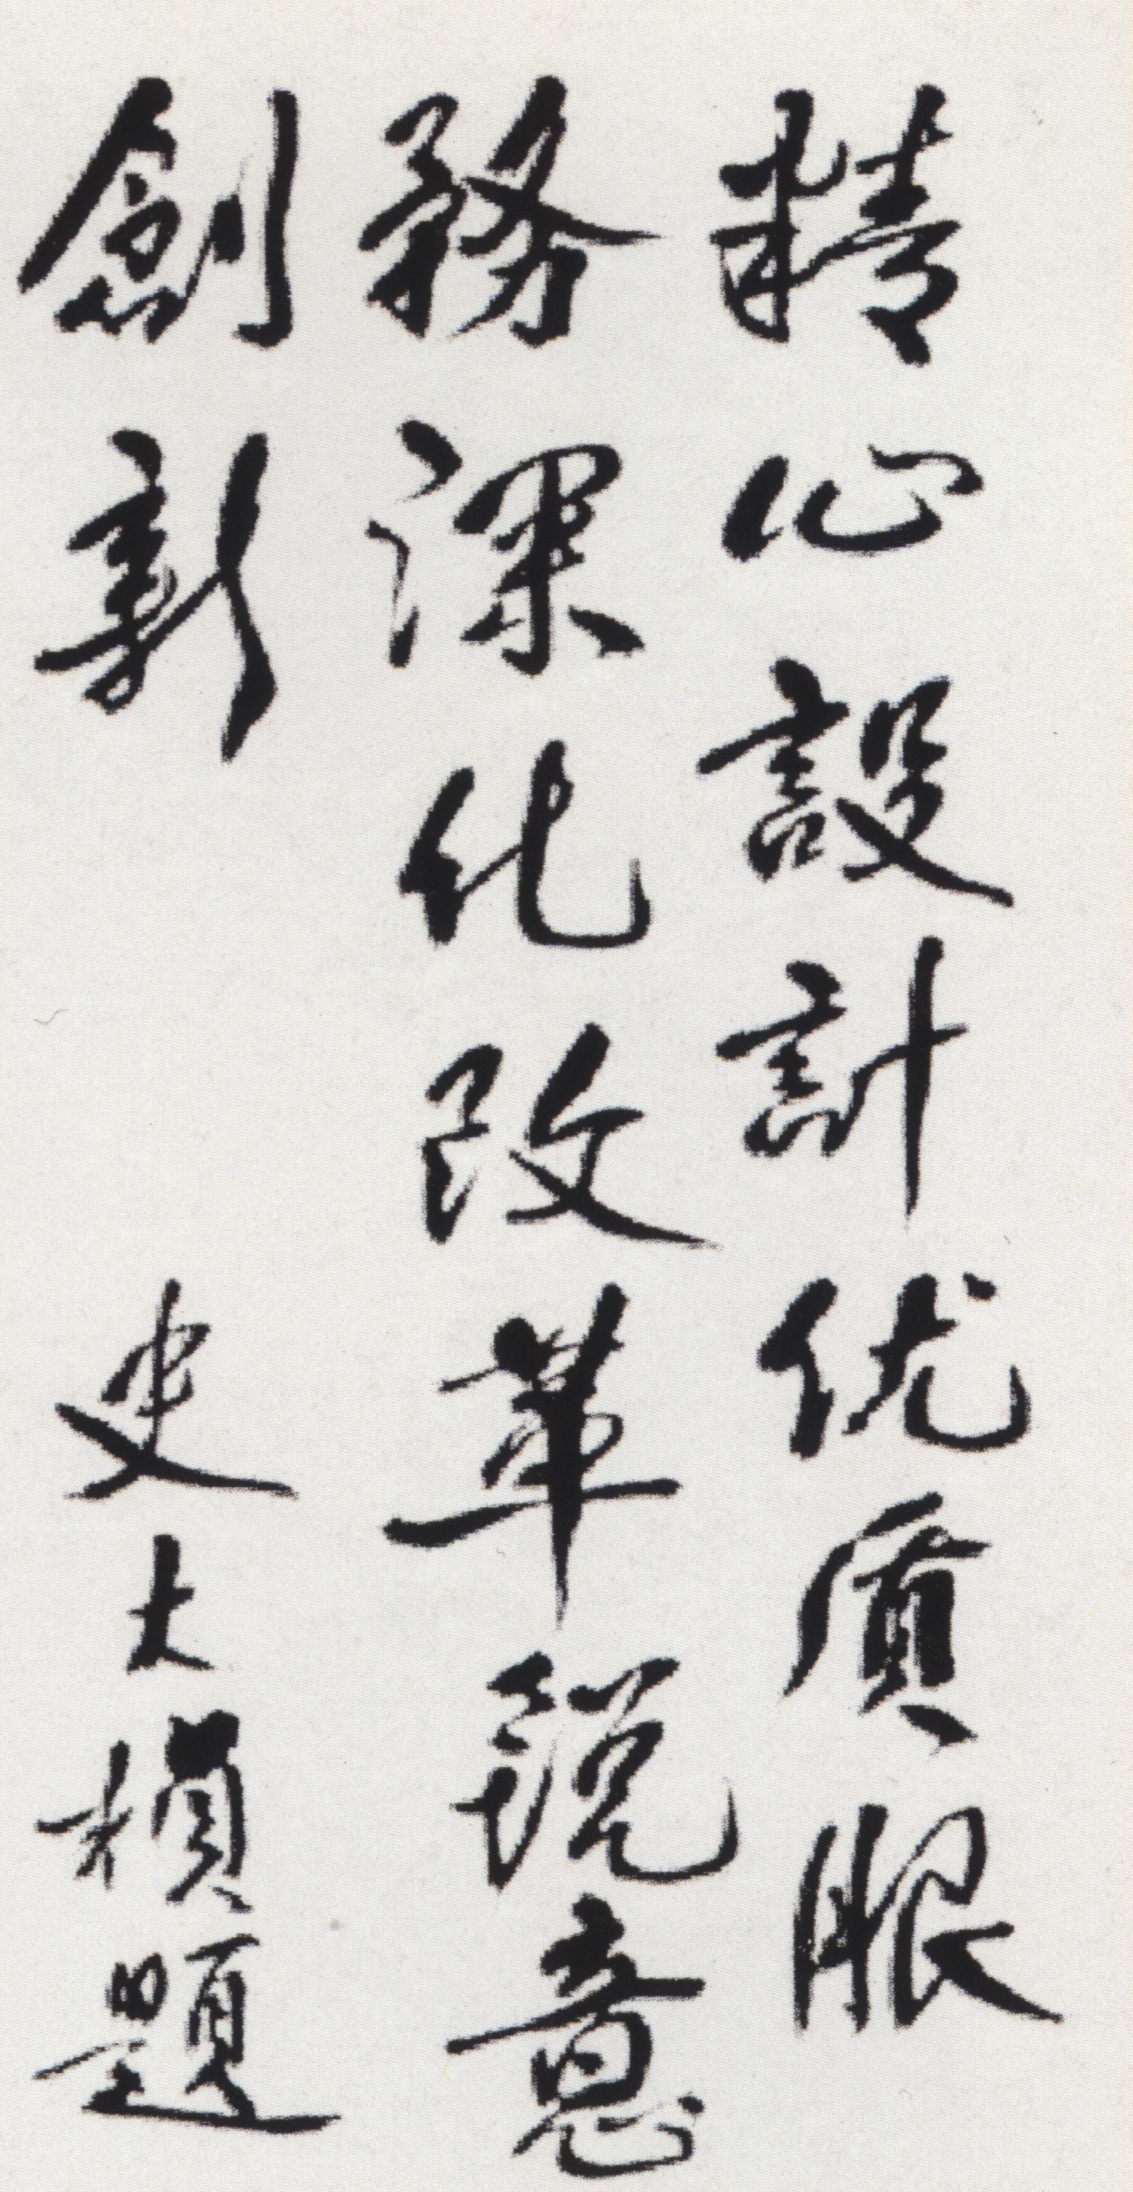 精心設計优质服
務深化改革锐意
創新
史大楨題